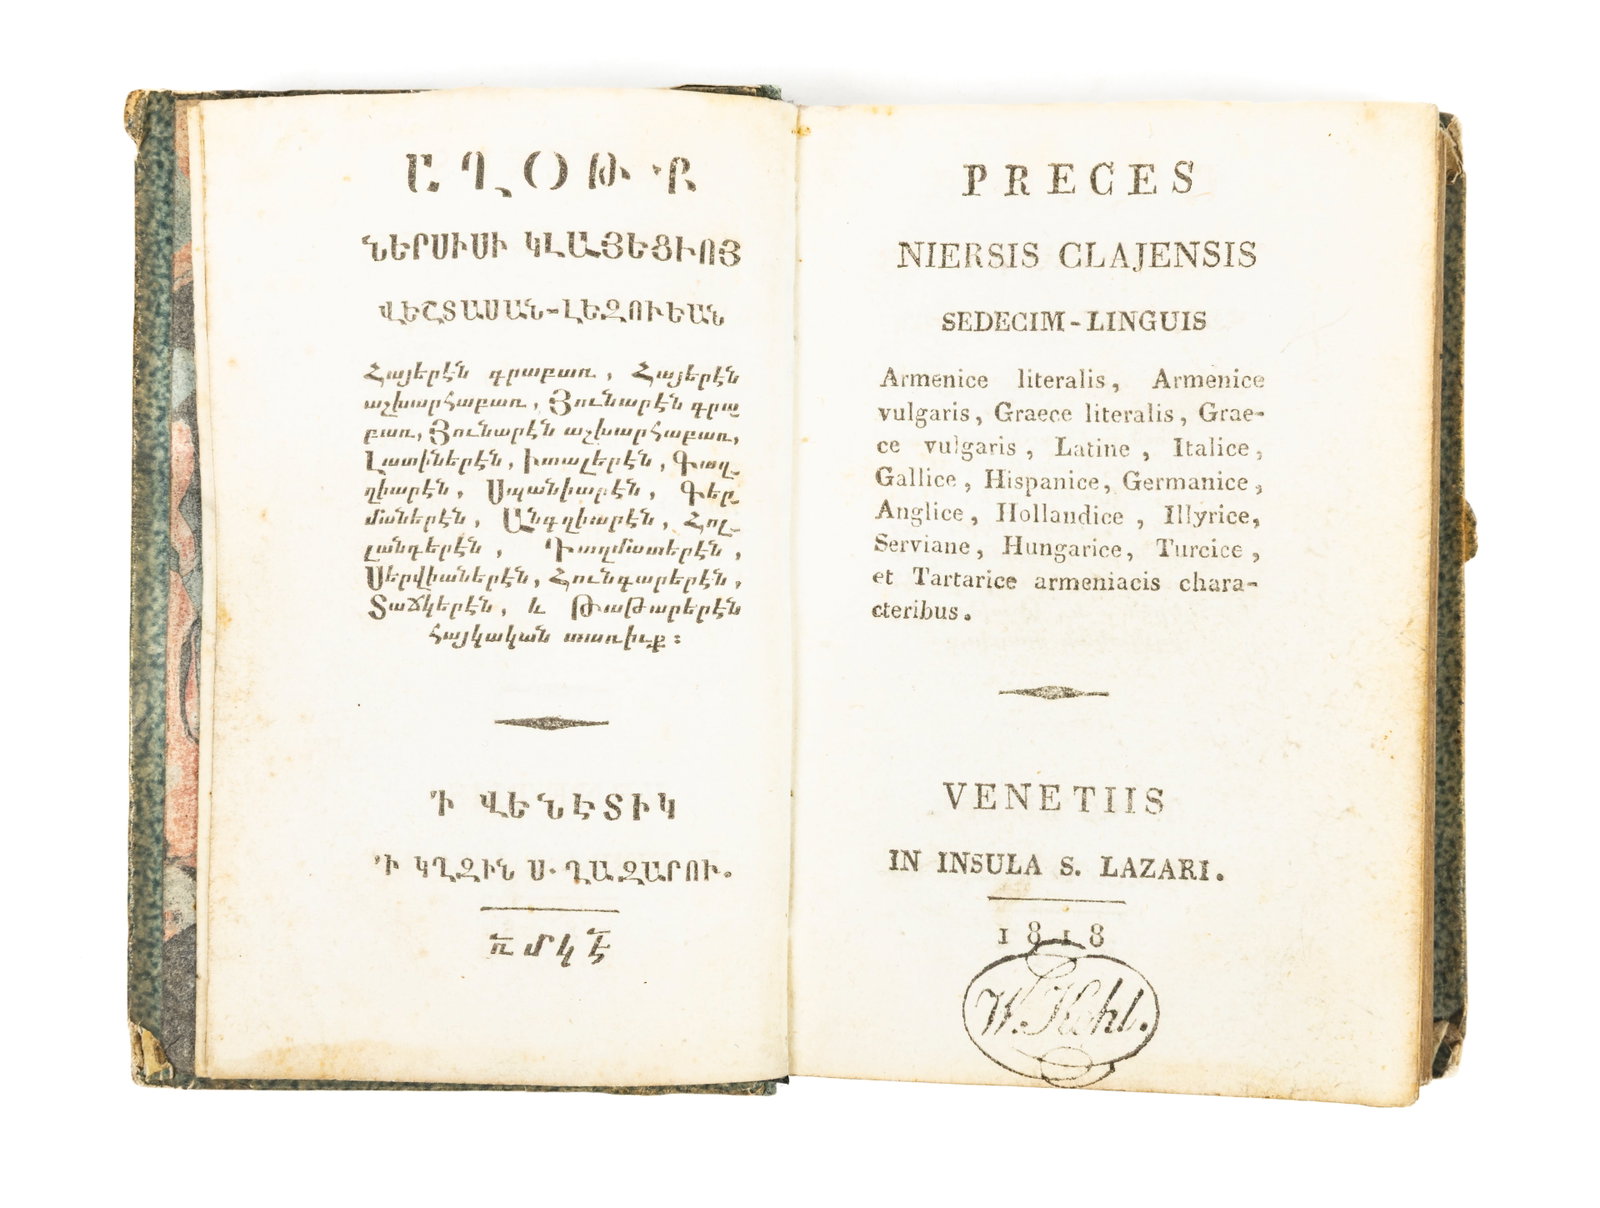 ԱՂՕԹՔ
ՆԵՐՍԻՍԻ ԿԼԱՅԵՑԻՈՅ
ՎԵՇՏԱՍԱՆ-ԼԵԶՈՒԵԱՆ
Հայերէն գրաբառ, Հայերէն
աշխարհաբառ, Յունարէն գրա֊
բառ, Յունարէն աշխարհաբառ,
Լատիներէն, իտալերէն, Գաղ֊
ղիարէն, Սպանիարէն, Գեր֊
մաներէն, Անգղիարէն, Հոլ֊
լանդերէն, Դաղմատերէն,
Սերվիաներէն, Հունգարերէն,
Տաճկերէն, և Թաթարերէն
հայկական տառիւք:
Ի ՎԵՆԷՏԻԿ
'Ի ԿՂԶԻՆ Ս. ՂԱԶԱՐՈՒ.
ռմկէ
PRECES
NIERSIS CLAJENSIS
SEDECIM-LINGUIS
Armenice literalis, Armenice
vulgaris, Graece literalis, Grae-
ce vulgaris, Latine, Italice,
Gallice, Hispanice, Germanice,
Anglice, Hollandice, Illyrice,
Serviane, Hungarice, Turcice,
et Tartarice armeniacis chara-
cteribus.
VENETIIS
IN INSULA S. LAZARI.
1818
W. Kohl.